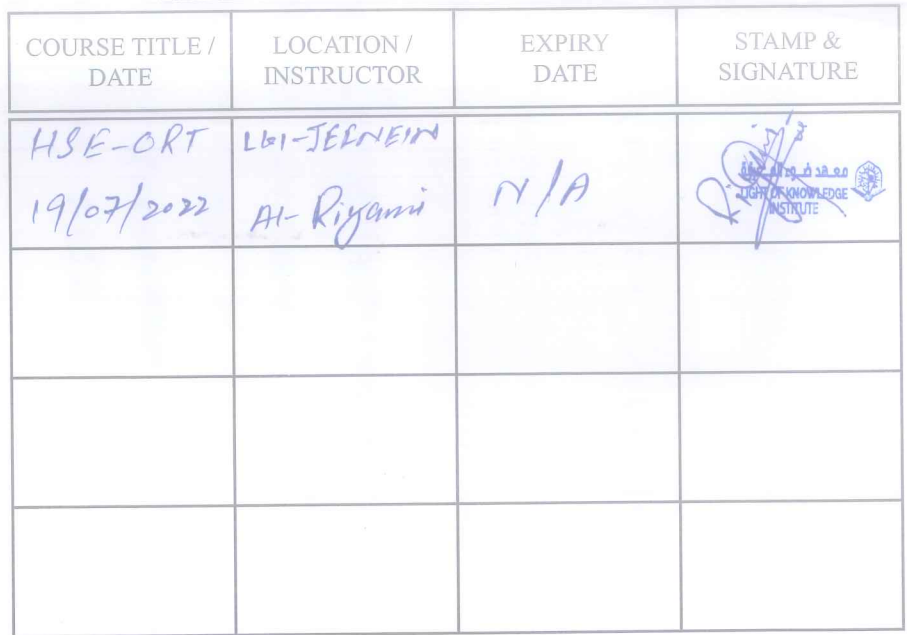 COURSE TITLE /
DATE
LOCATION /
INSTRUCTOR
EXPIRY
DATE
STAMP &
SIGNATURE
HSE-ORT
19/07/2022
Al-Riyami
N/A
معهد
LIGHT OF KNOWLEDGE
INSTITUTE